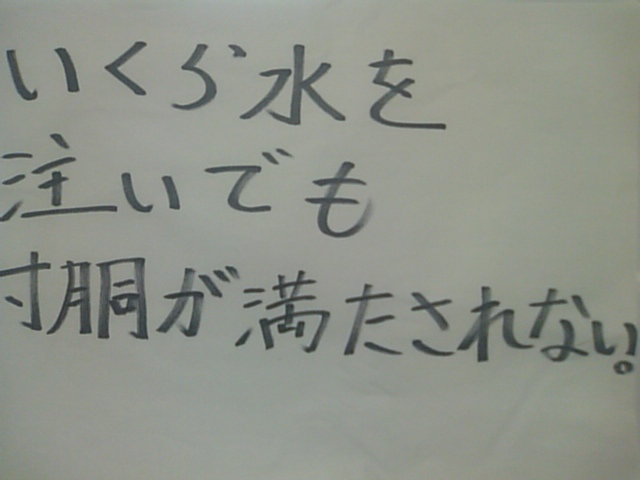 いくら水を
注いでも
寸胴が満たされない。